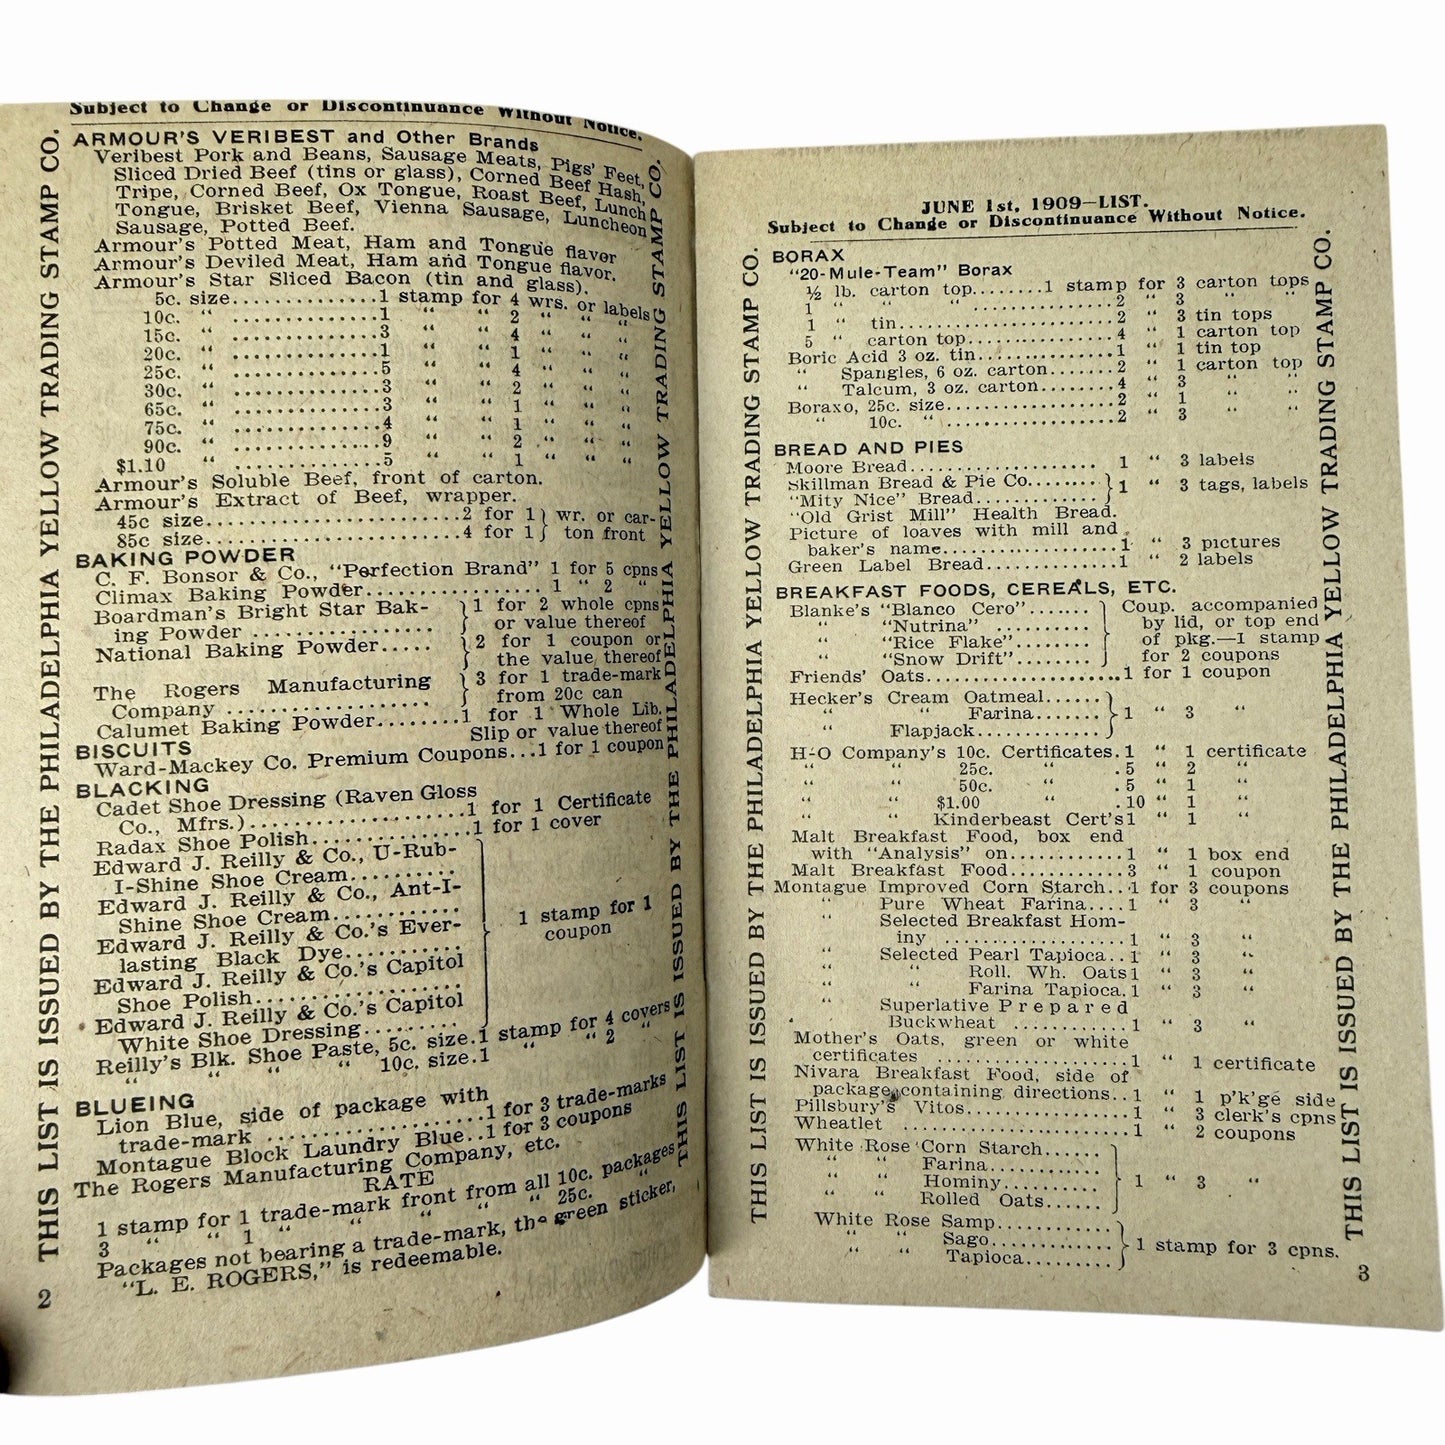 Subject to Change or Discontinuance Without Notice.
ARMOUR'S VERIBEST and Other Brands
Veribest Pork and Beans, Sausage Meats, Pigs' Feet,
Sliced Dried Beef (tins or glass), Corned Beef Hash,
Tripe, Corned Beef, Ox Tongue, Roast Beef, Lunch
Tongue, Brisket Beef, Vienna Sausage, Luncheon
Sausage, Potted Beef.
Armour's Potted Meat, Ham and Tongue flavor
Armour's Deviled Meat, Ham and Tongue flavor.
Armour's Star Sliced Bacon (tin and glass).
5c. size..............1 stamp for 4 wrs. or labels
10c. " ..............1 " " 2 " " "
15c. " ..............3 " " 4 " " "
20c. " ..............1 " " 1 " " "
25c. " ..............5 " " 4 " " "
30c. " ..............3 " " 2 " " "
65c. " ..............3 " " 1 " " "
75c. " ..............4 " " 1 " " "
90c. " ..............9 " " 2 " " "
$1.10 " ..............5 " " 1 " " "
Armour's Soluble Beef, front of carton.
Armour's Extract of Beef, wrapper.
45c size........................2 for 1 } wr. or car-
85c size........................4 for 1 } ton front
BAKING POWDER
C. F. Bonsor & Co., "Perfection Brand" 1 for 5 cpns
Climax Baking Powder................ 1 " 2 "
Boardman's Bright Star Bak- } 1 for 2 whole cpns
ing Powder ................. } or value thereof
National Baking Powder..... { 2 for 1 coupon or
the value thereof
The Rogers Manufacturing } 3 for 1 trade-mark
Company ................... } from 20c can
Calumet Baking Powder........1 for 1 Whole Lib.
Slip or value thereof
BISCUITS
Ward-Mackey Co. Premium Coupons...1 for 1 coupon
BLACKING
Cadet Shoe Dressing (Raven Gloss
Co., Mfrs.)....................1 for 1 Certificate
Radax Shoe Polish...............1 for 1 cover
Edward J. Reilly & Co., U-Rub-
I-Shine Shoe Cream..........
Edward J. Reilly & Co., Ant-I-
Shine Shoe Cream............
Edward J. Reilly & Co.'s Ever-
lasting Black Dye...........
Edward J. Reilly & Co.'s Capitol
Shoe Polish..................
Edward J. Reilly & Co.'s Capitol
White Shoe Dressing.........
1 stamp for 1
coupon
Reilly's Blk. Shoe Paste, 5c. size.1 stamp for 4 covers
" " " " 10c. size.1 " " 2 "
BLUEING
Lion Blue, side of package with
trade-mark ....................1 for 3 trade-marks
Montague Block Laundry Blue..1 for 3 coupons
The Rogers Manufacturing Company, etc.
RATE
1 stamp for 1 trade-mark front from all 10c. packages
3 " " 1 " " " " 25c. "
Packages not bearing a trade-mark, the green sticker,
"L. E. ROGERS," is redeemable.
2
THIS LIST IS ISSUED BY THE PHILADELPHIA YELLOW TRADING STAMP CO.
THIS LIST IS ISSUED BY THE PHILADELPHIA YELLOW TRADING STAMP CO.
JUNE 1st, 1909—LIST.
Subject to Change or Discontinuance Without Notice.
BORAX
"20-Mule-Team" Borax
½ lb. carton top........1 stamp for 3 carton tops
1 " " " ................2 " 3 " "
1 " tin.....................2 " 3 tin tops
5 " carton top..............4 " 1 carton top
Boric Acid 3 oz. tin.............1 " 1 tin top
" Spangles, 6 oz. carton.......2 " 1 carton top
" Talcum, 3 oz. carton........4 " 3 " "
Boraxo, 25c. size...................2 " 1 " "
" 10c. " ...................2 " 3 " "
BREAD AND PIES
Moore Bread..................... 1 " 3 labels
Skillman Bread & Pie Co........ }
"Mity Nice" Bread............. } 1 " 3 tags, labels
"Old Grist Mill" Health Bread.
Picture of loaves with mill and
baker's name...................1 " 3 pictures
Green Label Bread..............1 " 2 labels
BREAKFAST FOODS, CEREALS, ETC.
Blanke's "Blanco Cero"....... } Coup. accompanied
" "Nutrina" .......... } by lid, or top end
" "Rice Flake"........ } of pkg.—1 stamp
" "Snow Drift"........ } for 2 coupons
Friends' Oats.....................1 for 1 coupon
Hecker's Cream Oatmeal....... }
" " Farina....... } 1 " 3 "
" Flapjack............. }
H-O Company's 10c. Certificates.1 " 1 certificate
" " 25c. " .5 " 2 "
" " 50c. " .5 " 1 "
" " $1.00 " .10 " 1 "
" " Kinderbeast Cert's1 " 1 "
Malt Breakfast Food, box end
with "Analysis" on.............1 " 1 box end
Malt Breakfast Food.............3 " 1 coupon
Montague Improved Corn Starch..1 for 3 coupons
" Pure Wheat Farina....1 " 3 "
" Selected Breakfast Hom-
iny ....................1 " 3 "
" Selected Pearl Tapioca..1 " 3 "
" Roll. Wh. Oats1 " 3 "
" Farina Tapioca.1 " 3 "
" Superlative Prepared
Buckwheat ............1 " 3 "
Mother's Oats, green or white
certificates .......................1 " 1 certificate
Nivara Breakfast Food, side of
package containing directions..1 " 1 p'k'ge side
Pillsbury's Vitos..................1 " 3 clerk's cpns
Wheatlet ..........................1 " 2 coupons
White Rose Corn Starch...... }
" " Farina............ }
" " Hominy............ } 1 " 3 "
" " Rolled Oats...... }
White Rose Samp............. }
" " Sago............. } 1 stamp for 3 cpns.
" " Tapioca......... }
3
THIS LIST IS ISSUED BY THE PHILADELPHIA YELLOW TRADING STAMP CO.
THIS LIST IS ISSUED BY THE PHILADELPHIA YELLOW TRADING STAMP CO.